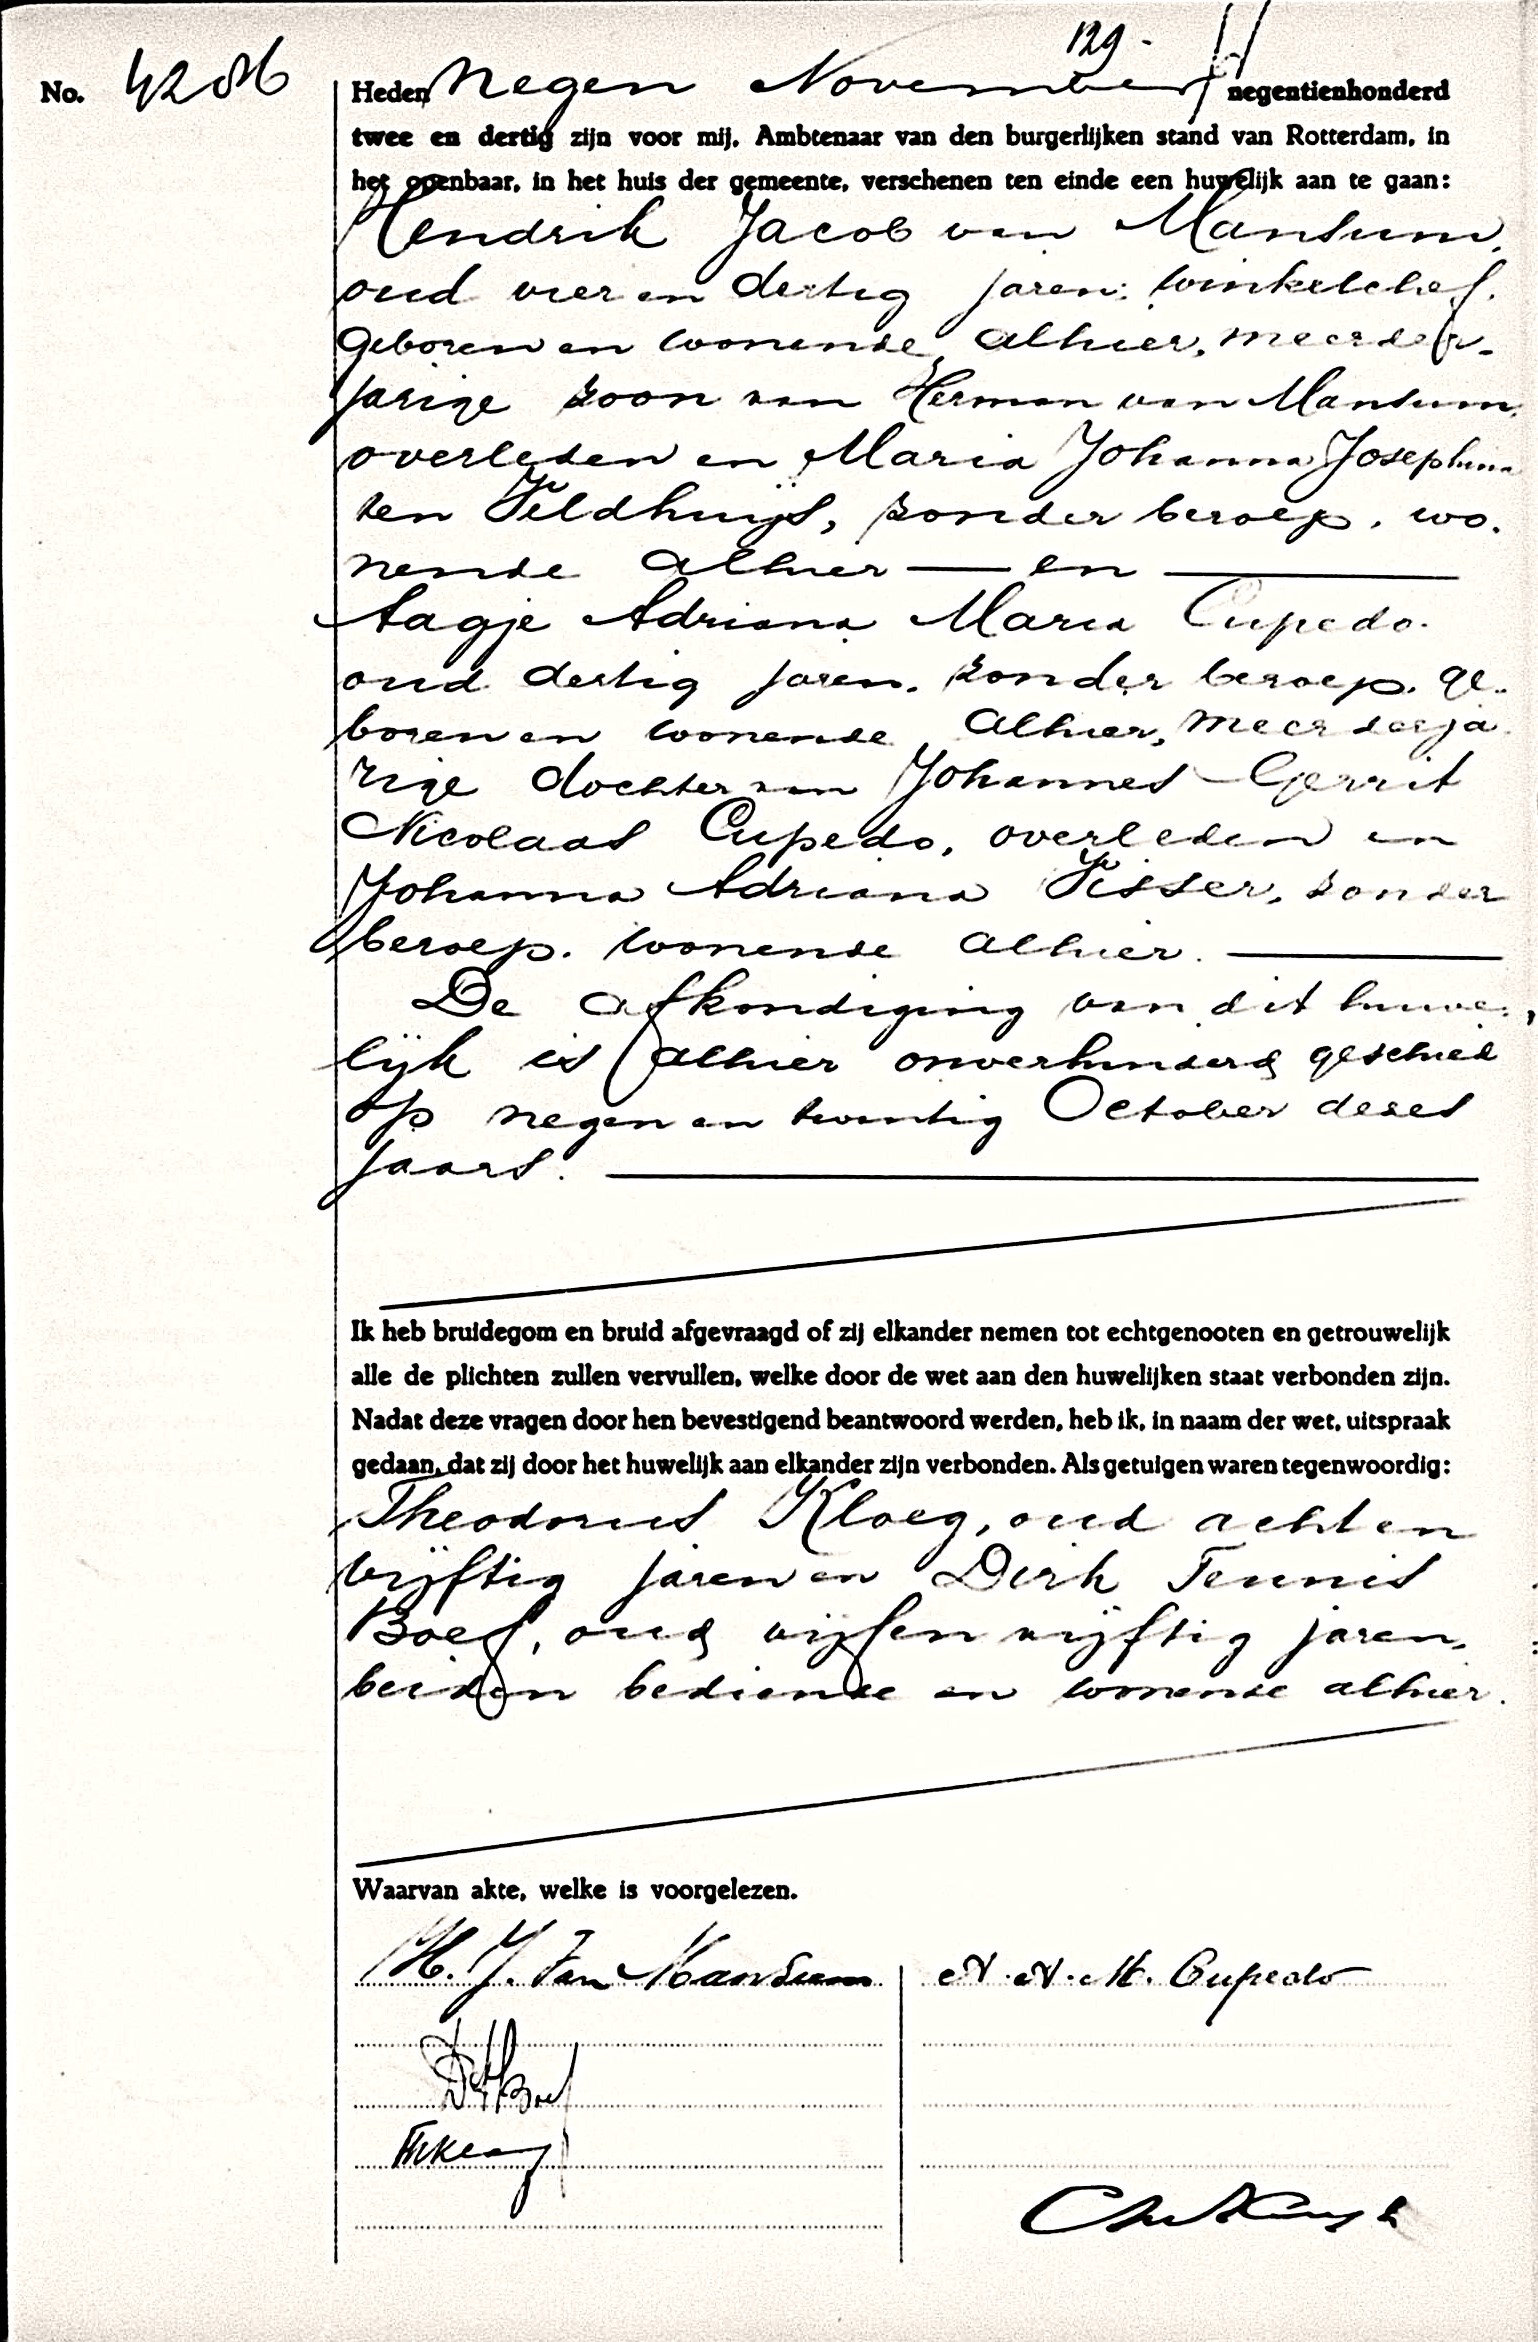 129.
No. 4286
Heden Negen November negentienhonderd
twee en dertig zijn voor mij, Ambtenaar van den burgerlijken stand van Rotterdam, in
het openbaar, in het huis der gemeente, verschenen ten einde een huwelijk aan te gaan:
Hendrik Jacob van Mansum,
oud vier en dertig jaren, winkelchef,
geboren en wonende alhier, meerder-
jarige zoon van Herman van Mansum,
overleden en Maria Johanna Josephina
ten Veldhuijs, zonder beroep, wo-
nende alhier — en —
Aagje Adriana Maria Cupedo,
oud dertig jaren, zonder beroep, ge-
boren en wonende alhier, meerderja
rige dochter van Johannes Gerrit
Nicolaas Cupedo, overleden en
Johanna Adriana Visser, zonder
beroep, wonende alhier. —
De afkondiging van dit huwe-
lijk is alhier onverhinderd geschied
op negen en twintig October dezes
jaars. —
Ik heb bruidegom en bruid afgevraagd of zij elkander nemen tot echtgenooten en getrouwelijk
alle de plichten zullen vervullen, welke door de wet aan den huwelijken staat verbonden zijn.
Nadat deze vragen door hen bevestigend beantwoord werden, heb ik, in naam der wet, uitspraak
gedaan, dat zij door het huwelijk aan elkander zijn verbonden. Als getuigen waren tegenwoordig:
Theodorus Kloeg, oud acht en
vijftig jaren en Dirk Teunis
Boef, oud vijf en vijftig jaren,
beiden bediende en wonende alhier.
Waarvan akte, welke is voorgelezen.
H. J. Van Mansum A. A. M. Cupedo
DTBoef
ThKloeg